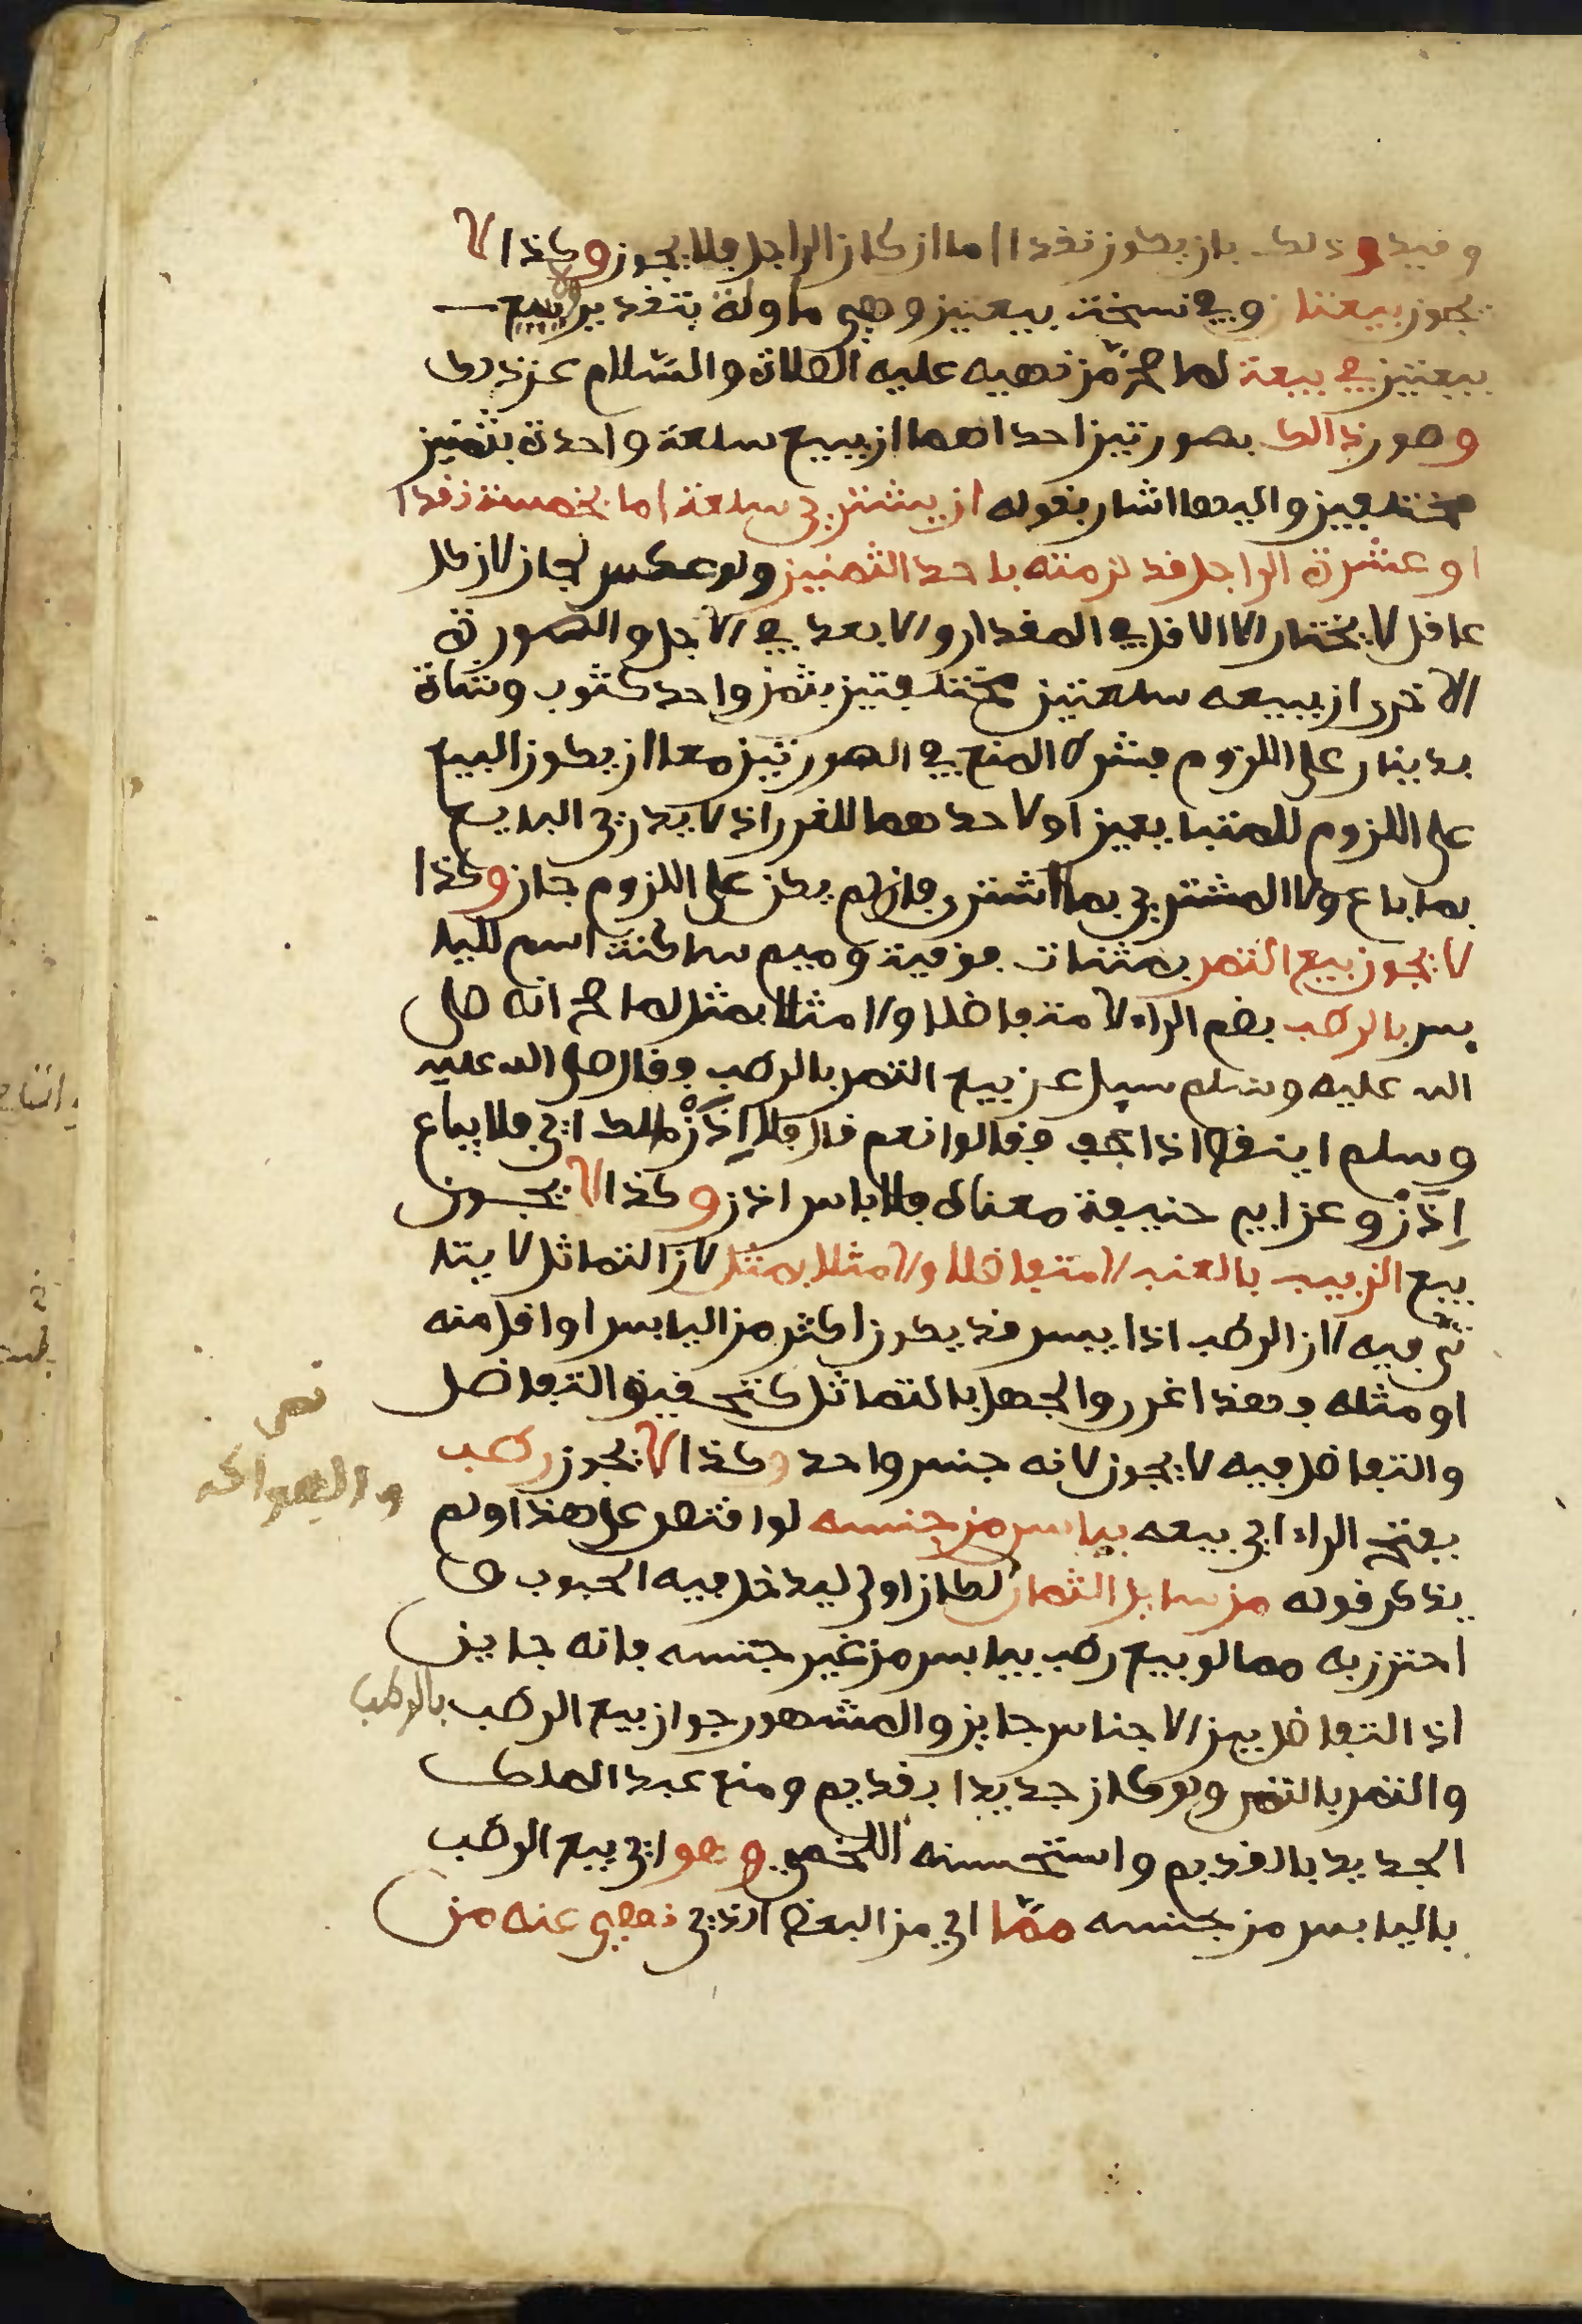 وقيد وذلك بان يكون نقدا اما ان كان الى اجل فلا يجوز وكذا لا
يجوز بيعتان وفي نسخة بيعتين وهي ماولة بتقدير بيع
بيعتين في بيعة لما صح من نهيه عليه الصلاة والسلام عن ذلك
وصور ذالك بصورتين احداهما ان يبيع سلعة واحدة بثمنين
مختلفين واليها اشار بقوله ان يشتري سلعة اما بخمسة نقدا
او عشرة الى اجل قد لزمته باحد الثمنين ولو عكس لجاز لان كل
عاقل لا يختار الا الاقل في المقدار والابعد في الاجل والصورة
الاخرى ان يبيعه سلعتين مختلفتين بثمن واحد كثوب وشاة
بدينار على اللزوم فشرط المنع في الصورتين معا ان يكون البيع
على اللزوم للمتبايعين او لاحدهما للغرر اذ لا يدري البايع
بما باع ولا المشتري بما اشترى فان لم يكن على اللزوم جاز وكذا
لا يجوز بيع التمر بمثنات فوقية وميم ساكنة اسم لليا
بس بالرطب بضم الراء لا متفاضلا ولا مثلا بمثل لما صح انه صلى
الله عليه وسلم سيل عن بيع التمر بالرطب فقال صلى الله عليه
وسلم اينقص اذا جف فقالوا نعم قال فلا إذن اي فلا يباع
إذن وعن ابي حنيفة معناه فلا باس اذن وكذا لا يجوز
بيع الزبيب بالعنب لا متفاضلا ولا مثلا بمثل لان التماثل لا يتا
تى فيه لان الرطب اذا يبس قد يكون اكثر من اليابس او اقل منه
او مثله وهذا غرر والجهل بالتماثل كتحقيق التفاضل
والتفاضل فيه لا يجوز لانه جنس واحد وكذا لا يجوز رطب
بفتح الراء اي بيعه بيابس من جنسه لو اقتصر على هذا ولم
يذكر قوله من ساير الثمار لكان اولى ليدخل فيه الحبوب
احترز به مما لو بيع رطب بيابس من غير جنسه فانه جايز
اذ التفاضل بين الاجناس جايز والمشهور جواز بيع الرطب بالرطب
والتمر بالتمر ولو كان جديدا بقديم ومنع عبد الملك
الجديد بالقديم واستحسنه اللخمي وهو اي بيع الرطب
باليابس من جنسه ممّا اي من البعض الذي نهي عنه من
والفواكه